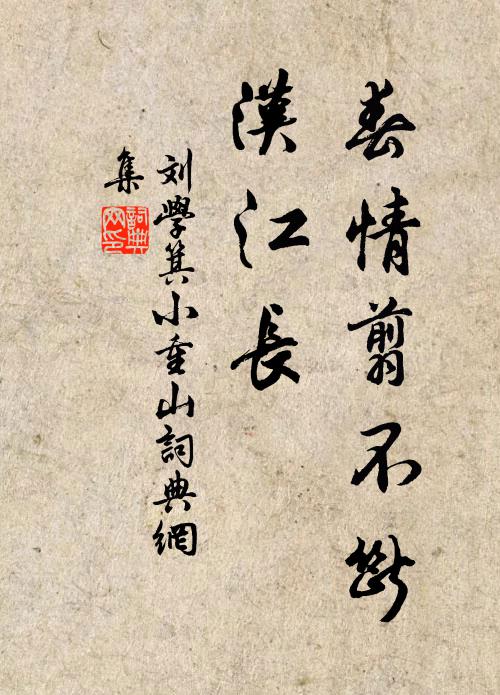 春情翦不斷
漢江長
刘學箕小重山詞典網
集
詞典網印